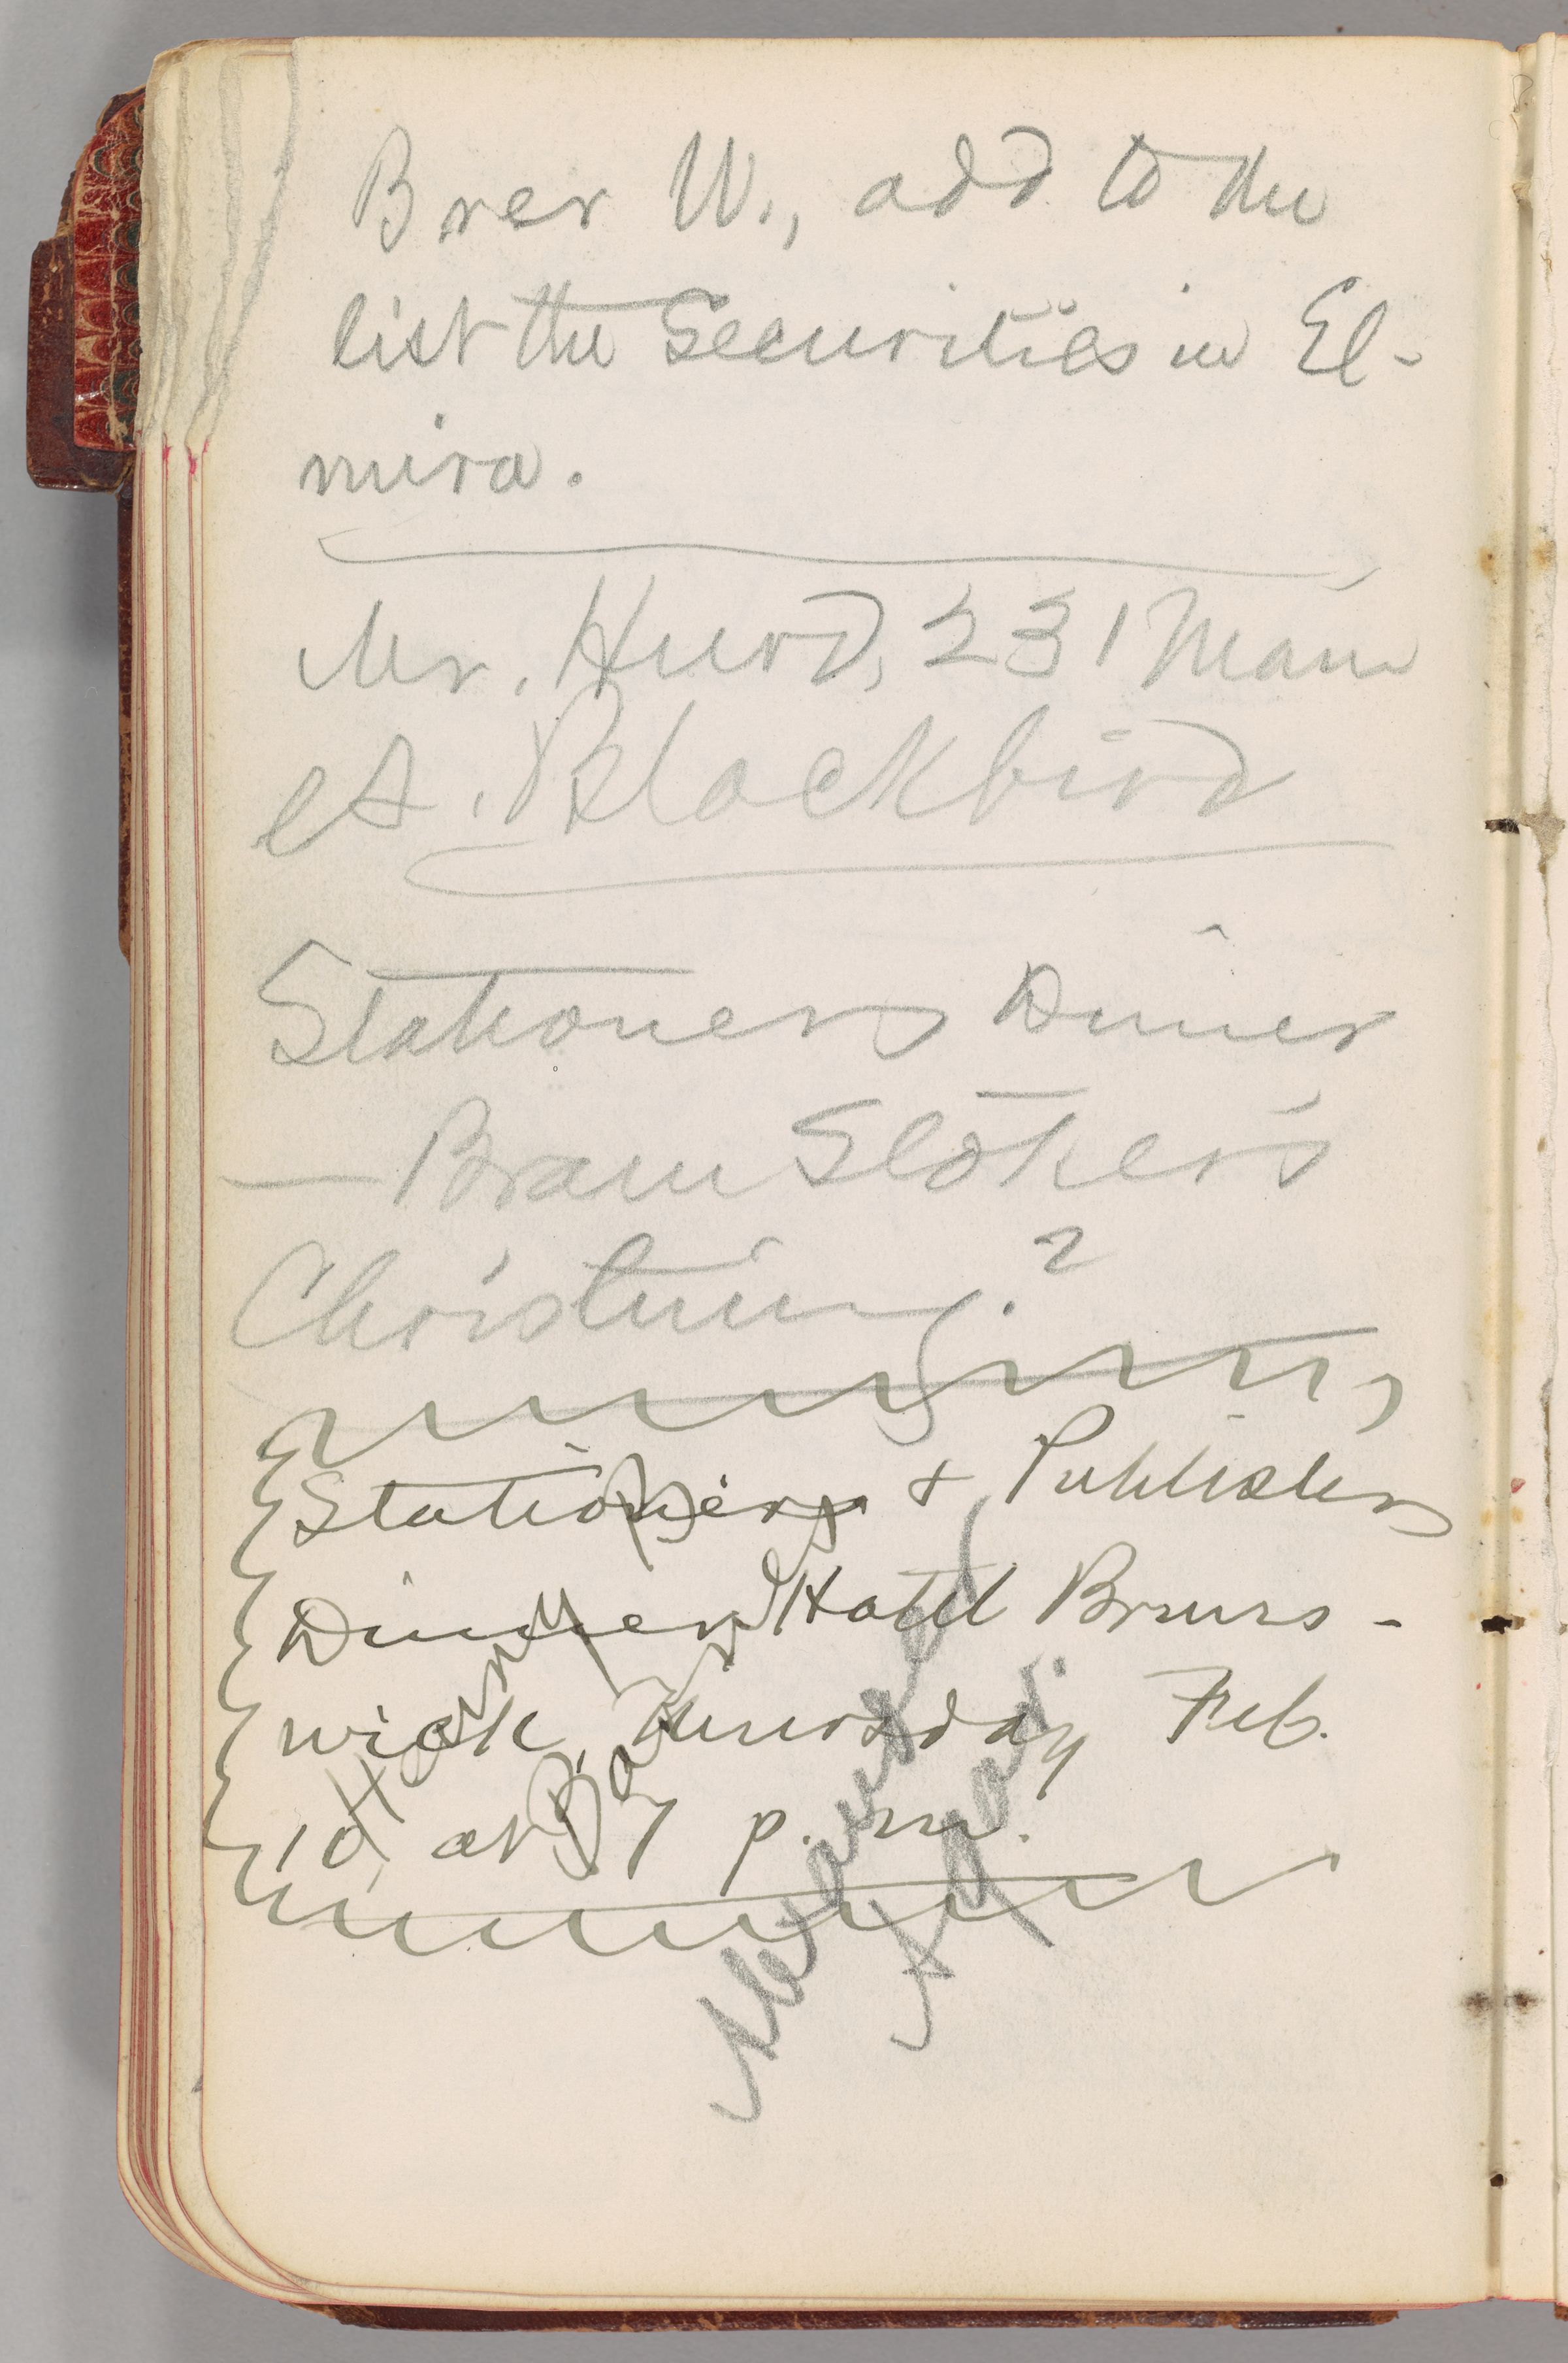 Brer W., add to the
list the Securities in El-
mira.
Mr. Hurd, 231 Main
st. Blackbird
Stationers Dinner
— Bram Stoker's
Christening?
Stationers & Publishers
Dinner Hotel Bruns-
wick, Thursday Feb.
10, at 7 p. m.
Henry